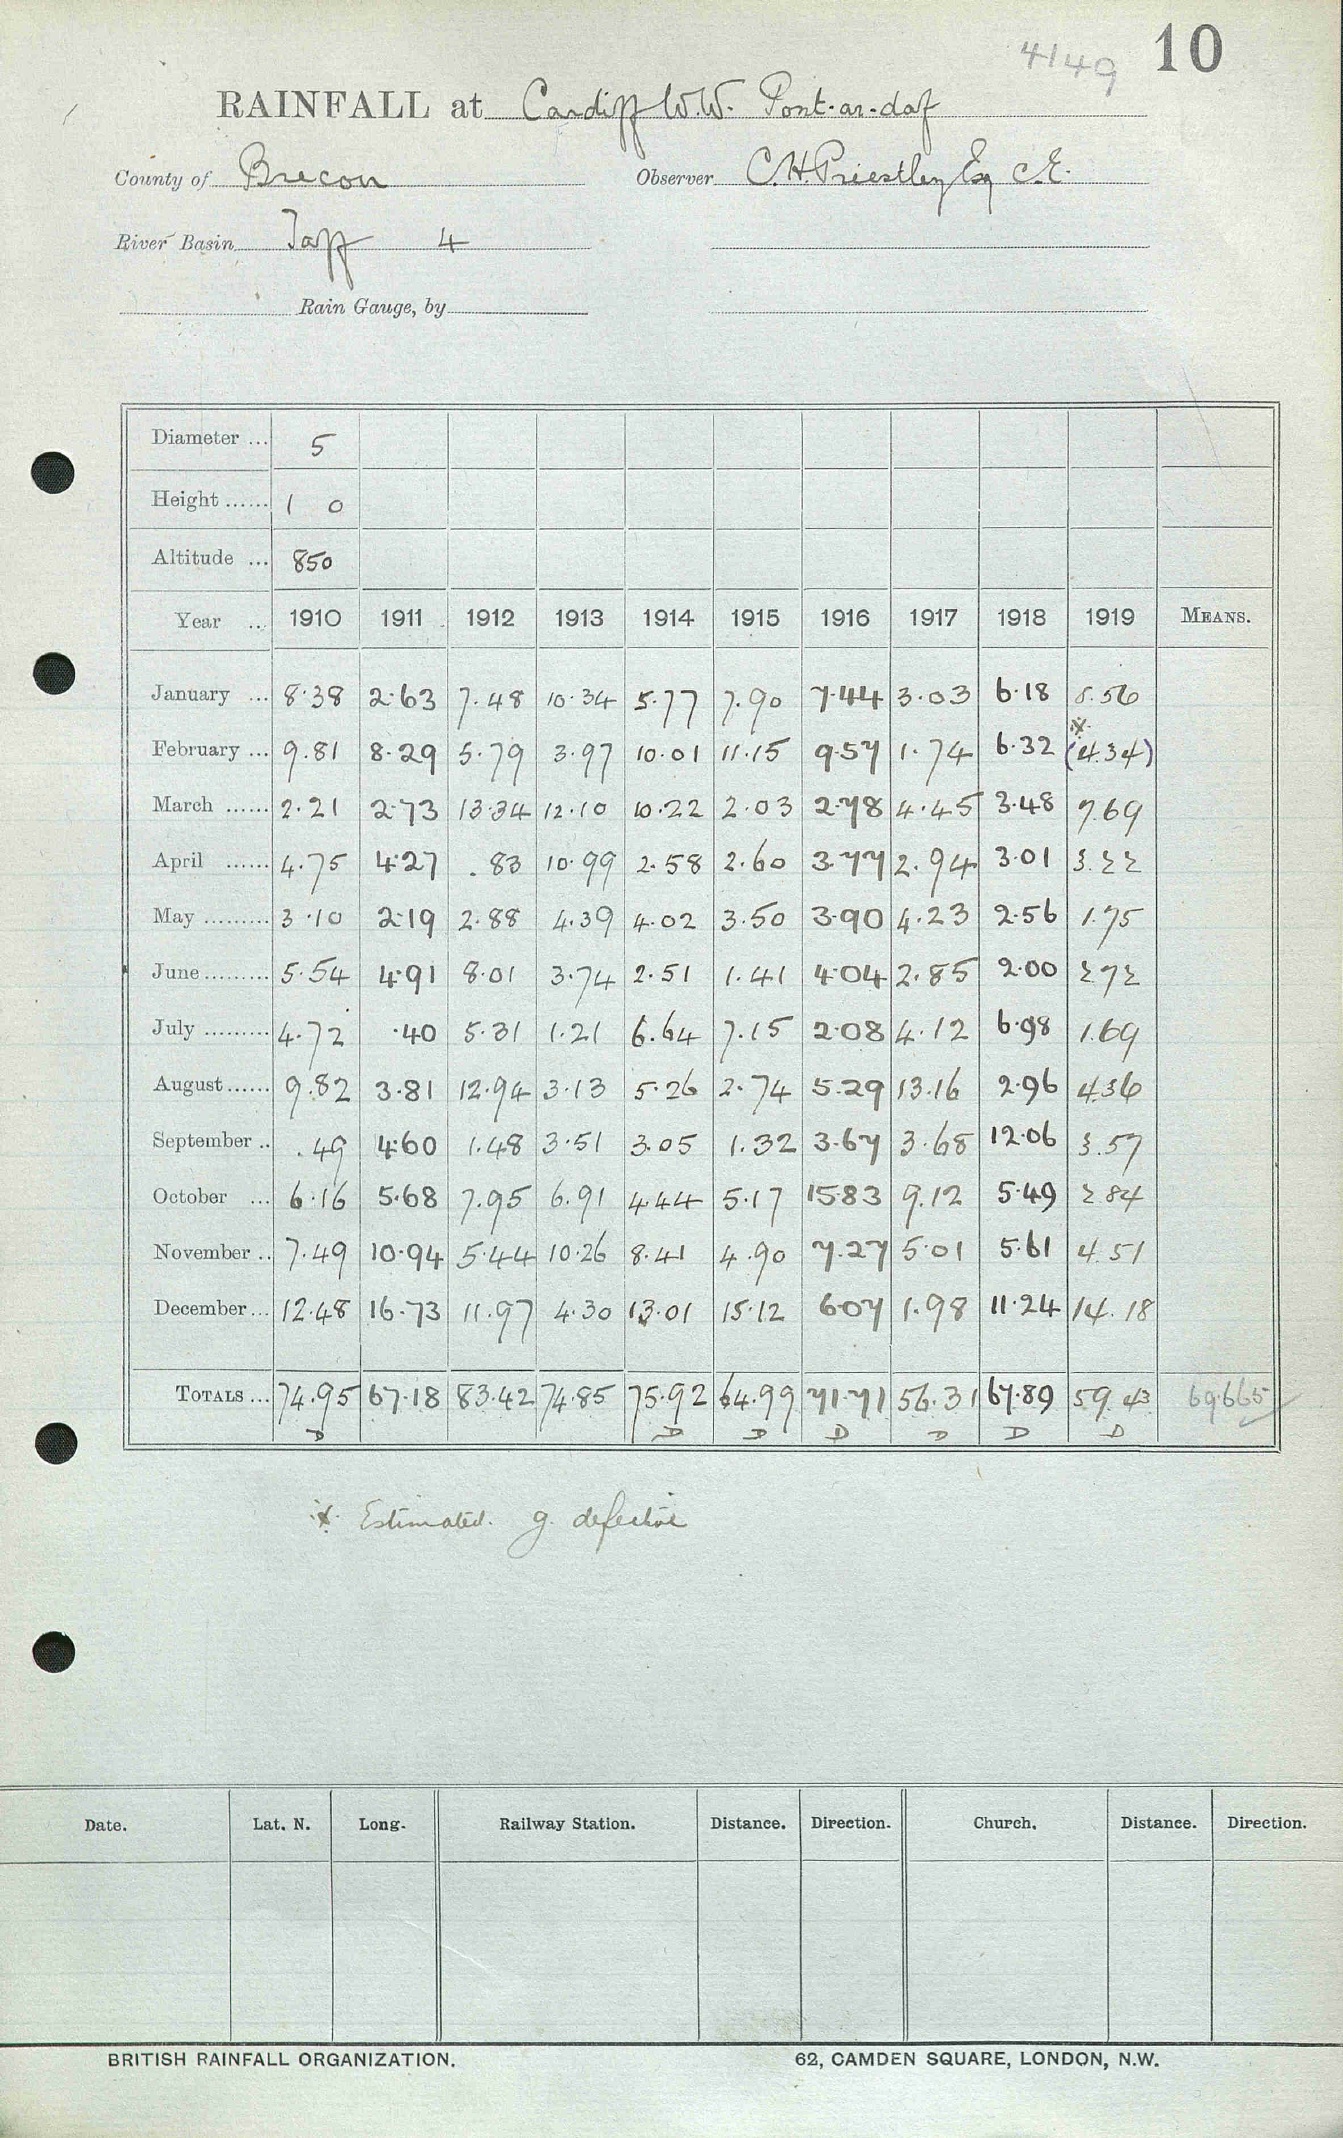 4149 10
RAINFALL at Cardiff W.W. Pont-ar-daf
County of Brecon Observer C.H. Priestley Esq C.E.
River Basin Taff 4
Rain Gauge, by
Diameter ... 5
Height ...... 1 0
Altitude ... 850
Year ... 1910 1911 1912 1913 1914 1915 1916 1917 1918 1919 MEANS.
January ... 8.38 2.63 7.48 10.34 5.77 7.90 7.44 3.03 6.18 8.56
February ... 9.81 8.29 5.79 3.97 10.01 11.15 9.57 1.74 6.32 (4.34)*
March ...... 2.21 2.73 13.34 12.10 10.22 2.03 2.78 4.45 3.48 7.69
April ...... 4.75 4.27 .83 10.99 2.58 2.60 3.77 2.94 3.01 3.22
May ......... 3.10 2.19 2.88 4.39 4.02 3.50 3.90 4.23 2.56 1.75
June ......... 5.54 4.91 8.01 3.74 2.51 1.41 4.04 2.85 2.00 2.72
July ......... 4.72 .40 5.31 1.21 6.64 7.15 2.08 4.12 6.98 1.69
August ...... 9.82 3.81 12.94 3.13 5.26 2.74 5.29 13.16 2.96 4.36
September .. .49 4.60 1.48 3.51 3.05 1.32 3.67 3.68 12.06 3.57
October ... 6.16 5.68 7.95 6.91 4.44 5.17 15.83 9.12 5.49 2.84
November .. 7.49 10.94 5.44 10.26 8.41 4.90 7.27 5.01 5.61 4.51
December ... 12.48 16.73 11.97 4.30 13.01 15.12 6.07 1.98 11.24 14.18
TOTALS ... 74.95 67.18 83.42 74.85 75.92 64.99 71.71 56.31 67.89 59.43 69.665
D D D D D D D
* Estimated. g. defective
Date. Lat. N. Long. Railway Station. Distance. Direction. Church. Distance. Direction.
BRITISH RAINFALL ORGANIZATION. 62, CAMDEN SQUARE, LONDON, N.W.